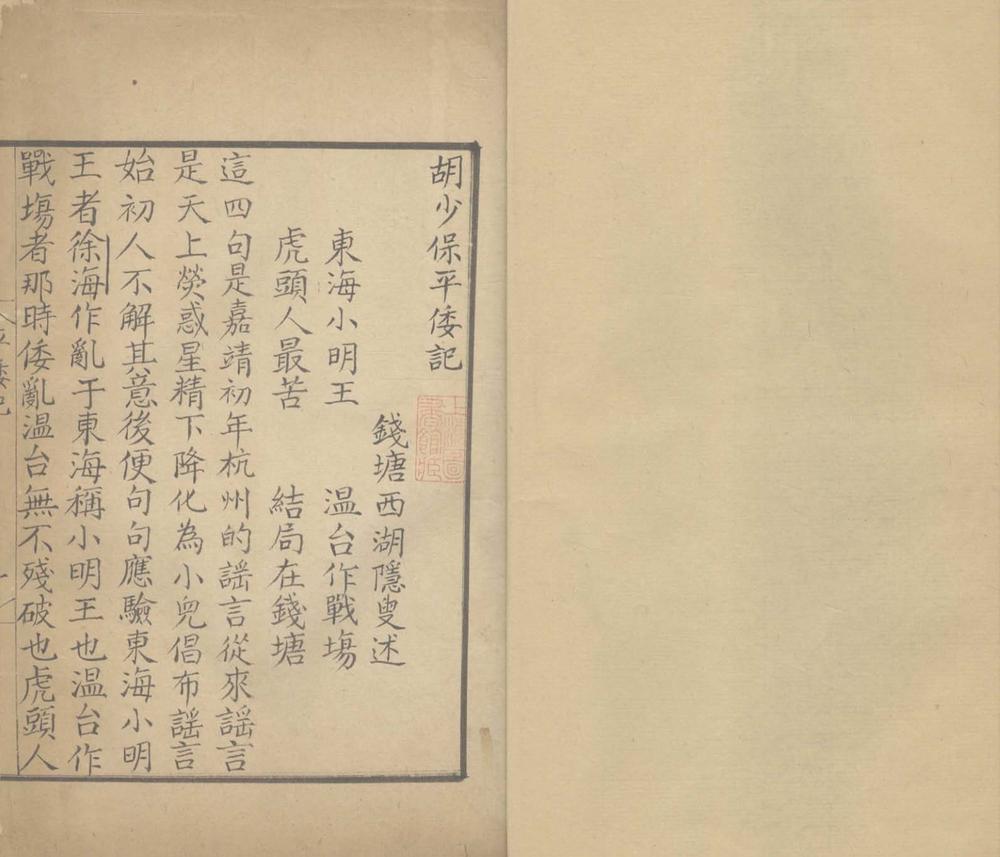 胡少保平倭記
錢塘西湖隱叟述
東海小明王　温台作戰塲
虎頭人最苦　結局在錢塘
這四句是嘉靖初年杭州的謡言從來謡言
是天上熒惑星精下降化為小兒倡布謡言
始初人不解其意後便句句應驗東海小明
王者徐海作亂于東海稱小明王也温台作
戰塲者那時倭亂温台無不殘破也虎頭人